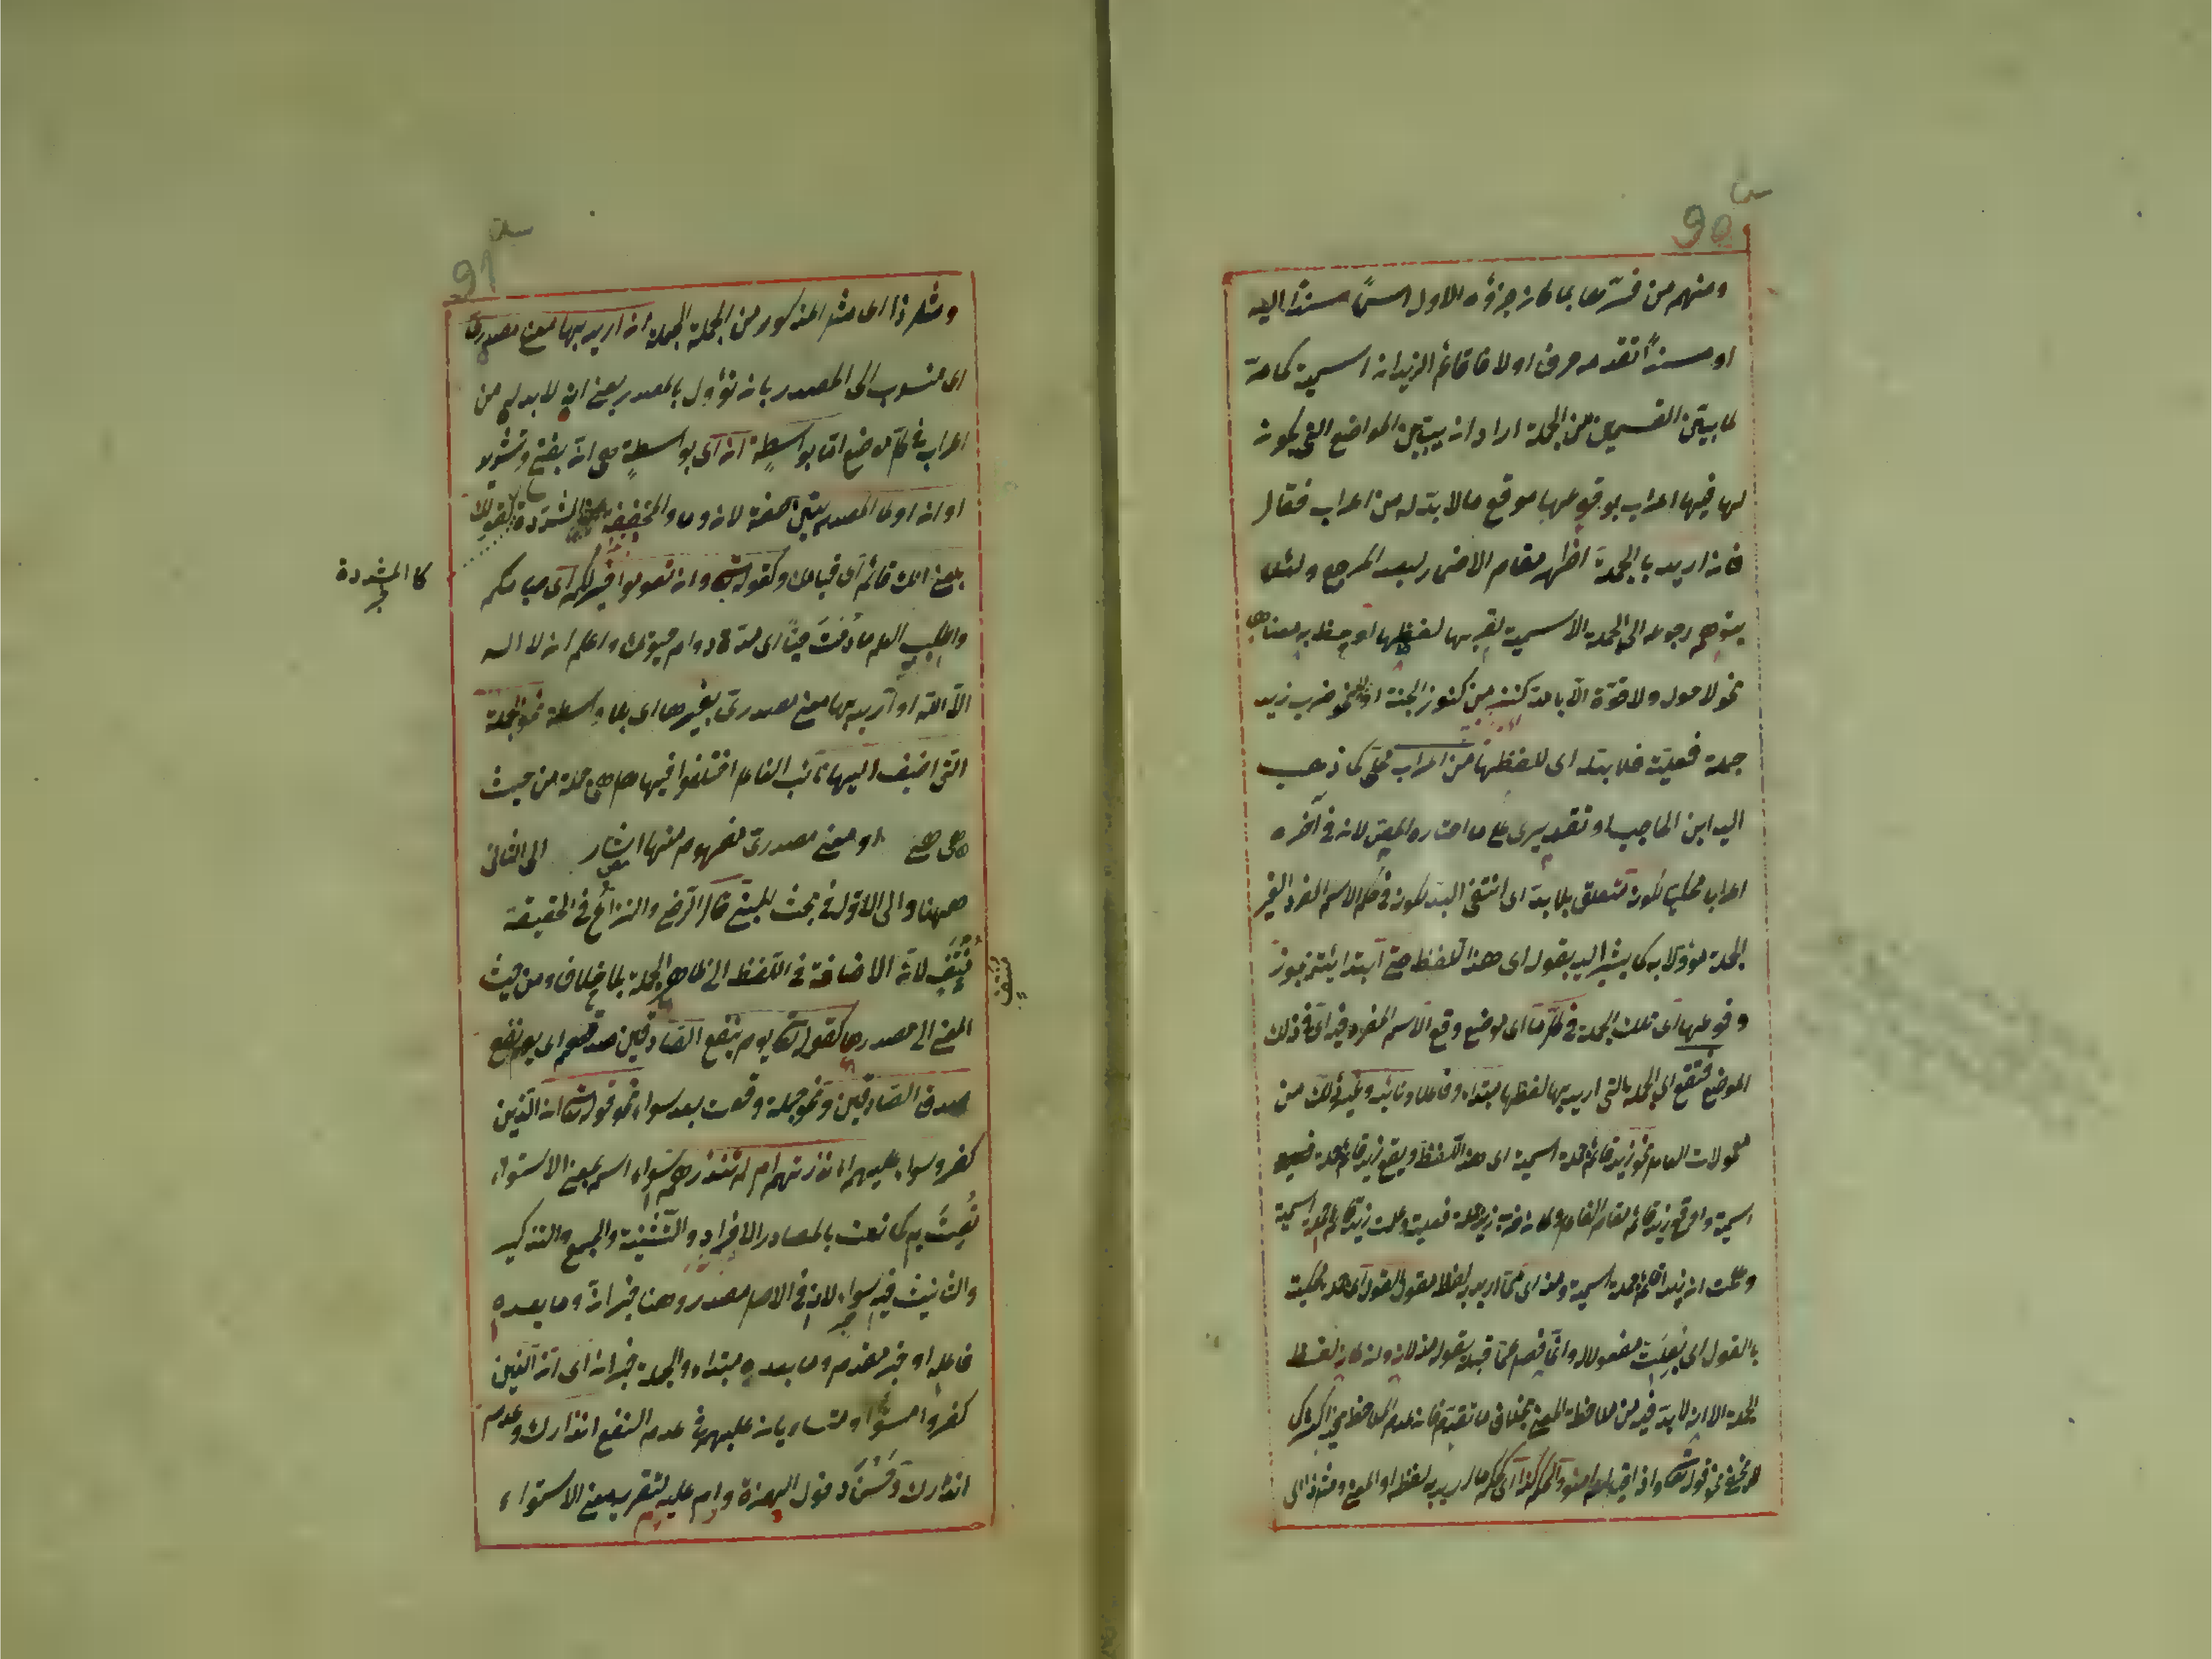 90
ومنهم من فسرها بما كان جزؤه الاول اسماً مسندًا اليه
او مسندًا تقدمه حرف اولا فاقائم الزيدان اسمية كما مرّ
لما بيّن القسمين من الجملة اراد ان يبيّن المواضع التى يكون
لها فيها اعراب بوقوعها موقع ما لا بدّ له من اعراب فقال
فان اريد بالجملة اظهر مقام الاضمار لبعد المرجع ولئلا
يتوهم رجوعه الى الجملة الاسمية لقربها لفظها
نحو لا حول ولا قوّة الّا بالله كنز من كنوز الجنة او نحو ضرب زيد
جملة فعلية فلا بدّ له اى للفظها من اعراب محلى كما ذهب
اليه ابن الحاجب او تقديرى على ما اختاره المص لانه فى آخره
اعراب محكى لكونه متعلق بلا بد اى انتفى البدّ لكونه فى حكم الاسم المفرد الغير
الجملة مؤوّلا به كما يشير اليه بقوله اى هذا اللفظ حتى ابتدائية فيجوز
وقوعها اى تلك الجملة فى كل ما اى موضع وقع الاسم المفرد فيه اى فى ذلك
الموضع فتقع اى الجملة التى اريد بها لفظها مبتداء وفاعلا ونائبه وغير ذلك من
معمولات العامل نحو زيد قائم جملة اسمية اى هذا اللفظ ويقع زيد قائم جملة
اسمية واوقع زيد قائم مقام الفاعل وكان ضرب زيد جملة فعلية وعلمت زيد قائم جملة اسمية
وعلمت ان زيدا قائم جملة اسمية ومنه اى مما اريد به لفظه مقول القول اى جملة محكية
بالقول اى جعلت مفعولا له وانما فصله عما قبله بقوله منه لانه وان كان لفظ
الجملة الا انه لا بدّ فيه من ملاحظة المعنى بخلاف ما تقدم فانه عدم الملاحظة
نحو قوله تعالى واذا قيل لهم امنوا اريد به لفظه او المعنى ومثل ذا اى
91
ومثل ذا اى مثل المذكور من الجملة الجملة ان اريد بها معنى مصدرى
اى منسوب الى المصدر بان تؤول بالمصدر يعنى انه لا بد له من
اعراب فى كل موضع اما بواسطة ان اى بواسطة هى ان بفتح وتشديد
او ان اولى المصدريتين صفة لان وما والمخففة المشددة كقولك
بلغنى انك قائم اى قيامك وكقوله تعالى وان تصوموا خير لكم اى صيامكم
كالمشددة
واطلب العلم ما دمت حيًّا اى مدة دوام حيوتك واعلم ان لا اله
الّا الله او اريد بها معنى مصدرى بغيرها اى بلا واسطة نحو الجملة
التى اضيف اليها نائب الفاعل اختلفوا فيها هل هى جملة من حيث
هى هى او معنى مصدرى مفهوم منها اشار الى الثانى
ههنا والى الاوّل فى بحث المبنى قال الرضى والنزاع فى الحقيقة
منتف لانّ الاضافة فى اللفظ الى ظاهر الجملة بلا خلاف ومن حيث
منتف
المعنى الى مصدرها كقوله تعالى يوم ينفع الصادقين صدقهم اى يوم نفع
صدق الصادقين ونحو جملة وقعت بعد سواء نحو قوله تعالى ان الذين
كفروا سواء عليهم أانذرتهم ام لم تنذرهم سواء اسم بمعنى الاستواء
نُعِتَ به كما نعت بالمصادر الافراد والتثنية والجمع والتذكير
والتانيث فيه سواء لانه فى الاصل مصدر وهنا خبر انّ وما بعده
فاعله او خبر مقدم وما بعده مبتداء والجملة خبر ان اى ان الذين
كفروا مستو او متساويان عليهم فى عدم النفع انذارك وعدم
انذارك وحَسُنَ دخول الهمزة وام عليه لتقرير معنى الاستواء